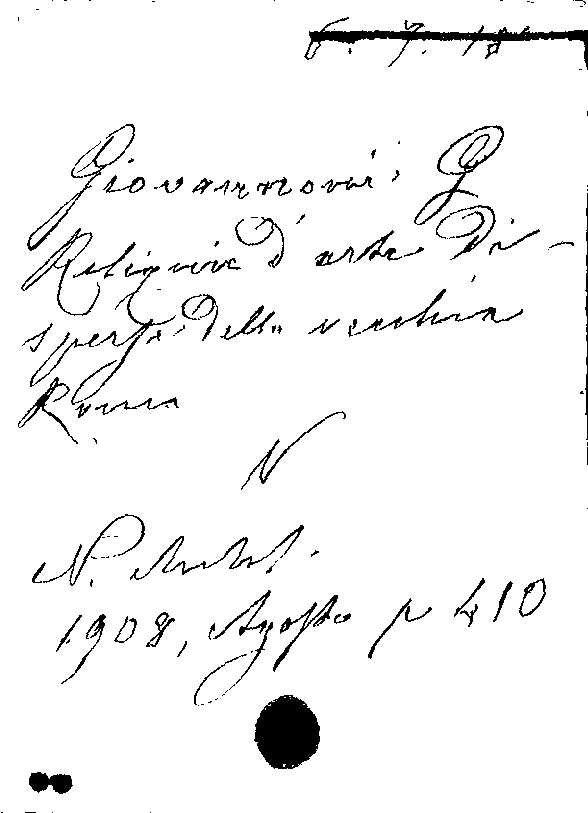 6. 7. 18
Giovannoni, G
Reliquie d'arte di-
sperse della vecchia
Roma
N
N. Antol.
1908, Agosto p 410